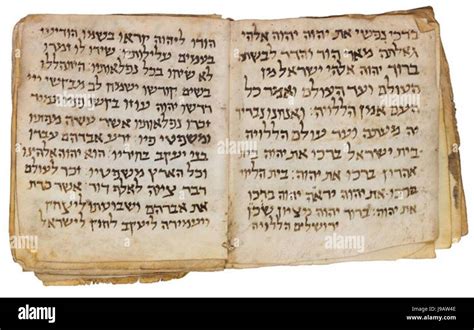 ברכי נפשי את יהוה יהוה אלהי
גדלתה מאד הוד והדר לבשת
ברוך יהוה אלהי ישראל מן
העולם ועד העולם ואמר כל
העם אמין הללויה: ואנחנו נברך
יה מעתה ועד עולם הללויה
בית ישראל ברכו את יהוה בית
אהרון ברכו את יהוה
ברכו את יהוה יראי יהוה ברכו
את יהוה: ברוך יהוה מציון שכן
ירושלים הללויה
הודו ליהוה קראו בשמו הודיעו
בעמים עלילותיו: שירו לו זמרו
לו שיחו בכל נפלאותיו:
בשם קודשו ישמח לב מבקשי יי
דרשו יהוה עוזו בקשו פניו
זכרו נפלאותיו אשר עשה
ומשפטי פיו זרע אברהם עבדו
בני יעקב בחיריו: הוא יהוה אלהינו
הארץ משפטיו: זכר לעולם
דבר ציוה לאלף דור: אשר כרת
את אברהם ושבועתו ליצחק
ויעמידה ליעקב לחוק לישראל
alamy
alamy stock photo
J9AW4E
www.alamy.com